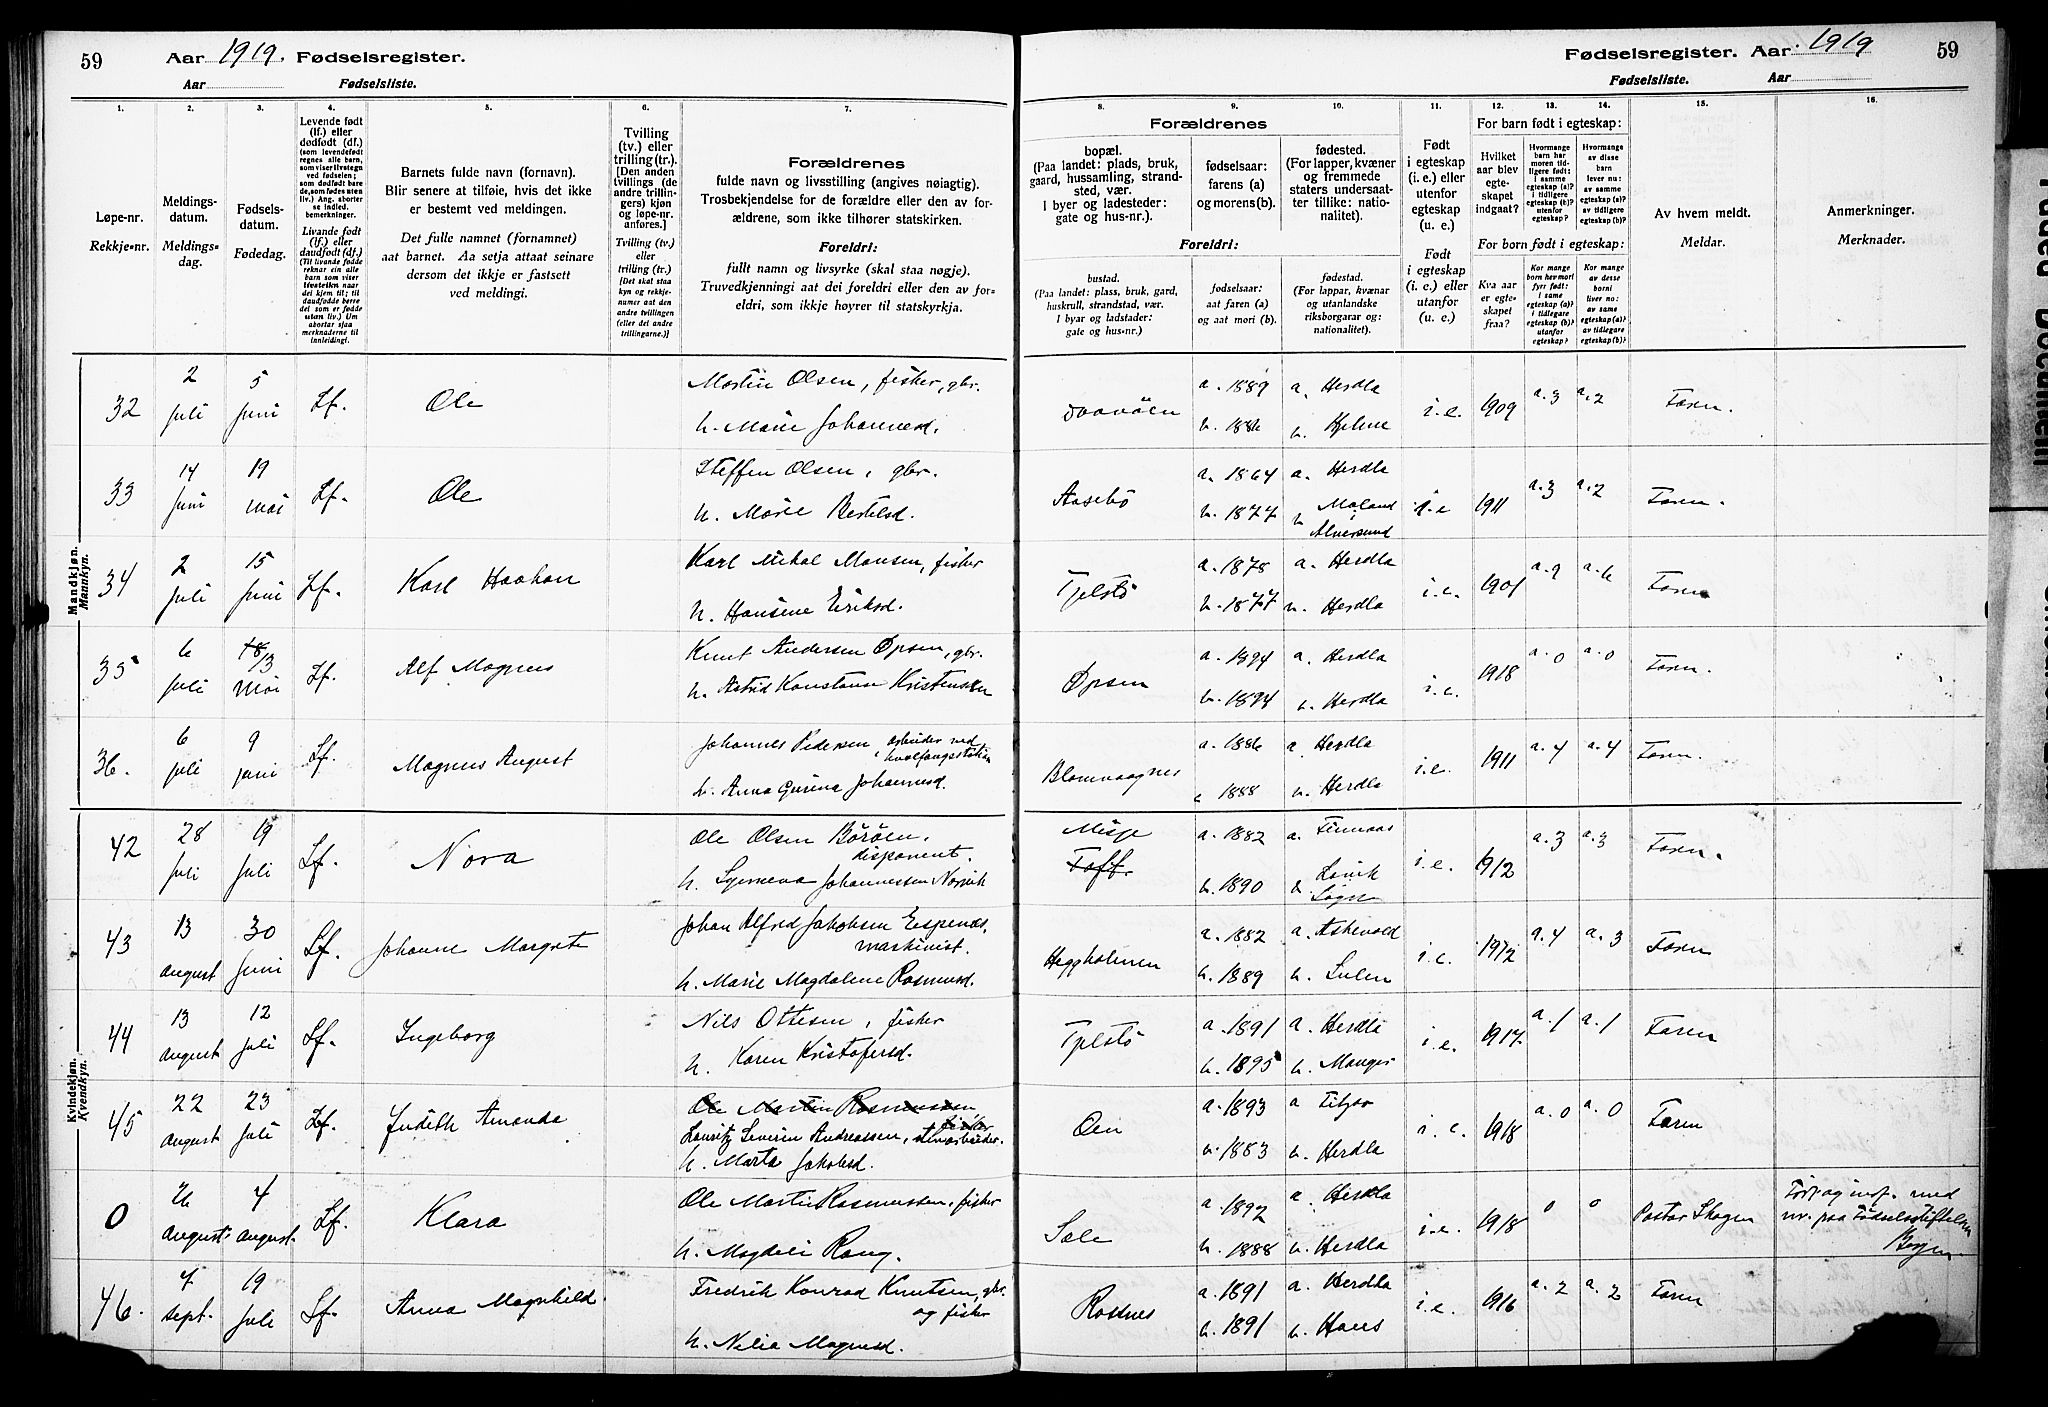 59 Aar 1919. Fødselsregister.
Aar Fødselsliste.
Fødselsregister. Aar 1919 59
Fødselsliste. Aar
1. 2. 3. 4. 5. 6. 7.
Løpe-nr.
Rekkje-nr.
Meldings-
datum.
Meldings-
dag.
Fødsels-
datum.
Fødedag.
Levende født
(lf.) eller
dødfødt (df.)
(som levendefødt
regnes alle barn,
som viser livstegn
ved fødselen;
som dødfødt bare
de, som fødes uten
liv.) Ang. aborter
se indled.
bemerkninger.
Livande født
(lf.) eller
daudfødt (df.)
(Til livande fødde
reknar ein alle
barn som viser
livsteikn naar
dei kjem til; til
daudfødde berre
dei som er fødde
utan liv.) Um
abortar sjaa
merknaderne til
innleiding).
Barnets fulde navn (fornavn).
Blir senere at tilføie, hvis det ikke
er bestemt ved meldingen.
Det fulle namnet (fornamnet)
aat barnet. Aa setja attaat seinare
dersom det ikkje er fastsett
ved meldingi.
Tvilling
(tv.) eller
trilling (tr.).
[Den anden
tvillings (de
andre trillin-
gers) kjøn
og løpe-nr.
anføres.]
Tvilling (tv.)
eller
trilling (tr.)
[Det skal staa
kyn og rekkje-
numer aat den
andre tvillingen
(eller dei andre
trillingarne.)]
Forældrenes
fulde navn og livsstilling (angives nøiagtig).
Trosbekjendelse for de forældre eller den av for-
ældrene, som ikke tilhører statskirken.
Foreldri:
fullt namn og livsyrke (skal staa nøgje).
Truvedkjenningi aat dei foreldri eller den av for-
eldri, som ikkje høyrer til statskyrkja.
8. 9. 10. 11. 12. 13. 14. 15. 16.
Forældrenes
bopæl.
(Paa landet: plads, bruk,
gaard, hussamling, strand-
sted, vær.
I byer og ladesteder:
gate og hus-nr.).
fødselsaar:
farens (a)
og morens (b).
fødested.
(For lapper, kvæner
og fremmede
staters undersaat-
ter tillike: natio-
nalitet).
Foreldri:
bustad.
(Paa landet: plass, bruk, gard,
huskrull, strandstad, vær.
I byar og ladstader:
gate og hus-nr.)
fødselsaar:
aat faren (a)
og aat mori (b).
fødestad.
(For lappar, kvænar
og utanlandske
riksborgarar og:
nationalitet).
Født
i egteskap
(i. e.) eller
utenfor
egteskap
(u. e.)
Født
i egteskap
(i. e.) eller
utanfor
(u. e.)
For barn født i egteskap:
Hvilket
aar blev
egte-
skapet
indgaat?
Hvormange
barn har
moren tid-
ligere født:
i samme
egteskap (a)?
i tidligere
egteskap (b)?
utenfor
egteskap?
Hvormange
av disse
barn
lever nu:
av samme
egteskap (a)?
av tidligere
egteskap (b)?
For born født i egteskap:
Kva aar
er egte-
skapet
fraa?
Kor mange
born hev mori
fyrr født:
i same
egteskap (a)?
i tidlegare
egteskap (b)?
utanfor
egteskap?
Kor mange
av desse
borni
liver no:
av same
egteskap (a)?
av tidlegare
egteskap (b)?
Av hvem meldt.
Meldar.
Anmerkninger.
Merknader.
Mandkjøn.
Mankyn.
32 2 juli 5 juni Lf. Ole Martin Olsen, fisker, gbr. a. 1889 a. Herdla i.e. 1909 a. 3 a. 2 Faren.
h. Marie Johannesd. b. 1886
33 14 juni 19 mai Lf. Ole Steffen Olsen, gbr. Aasebö a. 1864 a. Herdla i.e 1911 a. 3 a. 2 Faren.
h. Marie Bertelsd. b. 1877 b. Alversund
34 2 juli 15 juni Lf. Karl Haakon Karl Mikal Monsen, fisker Tjelstö a. 1878 a. Herdla i.e. 1901 a. 9 a. 6 Faren
h. Hansine Eriksd. b. 1877 b. Herdla
35 6 juli 18/3 mai Lf. Alf Magnus Knut Andersen Öpsen, gbr. Öpsen a. 1894 a. Herdla i.e. 1918 a. 0 a. 0 Faren.
h. Astrid Konstanse Kristensen b. 1894 b. Herdla
36. 6 juli 9 juni Lf. Magnus August Johannes Pedersen, arbeider ved hvalfangststation Blomvaagnes a. 1886 a. Herdla i.e. 1911 a. 4 a. 4 Faren.
h. Anna Gurina Johannesd. b. 1888 b. Herdla
Kvindekjøn.
Kvendkyn.
42 28 juli 19 juli Lf. Nora Ole Olsen Böröen, disponent. Misje Toft. a. 1882 a. Finnaas i.e. 1912 a. 3 a. 3 Faren.
h. Synneva Johannessen b. 1890 b. Lavik Sogn
43 13 august 30 juni Lf. Johanne Margrete Johan Alfred Jakobsen Espenes, maskinist. Heggholmen a. 1882 a. Askevold i.e. 1912 a. 4 a. 3 Faren
h. Marie Magdalene Rasmusd. b. 1889 b. Sulen
44 13 august 12 juli Lf. Ingeborg Nils Ottesen, fisker Tjelstö a. 1891 a. Herdla i.e. 1917. a. 1 a. 1 Faren
h. Karen Kristofersd. b. 1895 b. Manger
45 22 august 23 juli Lf. Judith Amanda Ole Martin Rasmussen fisker
Lauritz Severin Andreassen, stenarbeider. Oen a. 1893 a i.e. 1918 a. 0 a. 0 Faren
h. Marta Jakobsd. b. 1883 b. Herdla
0 26 august. 4 august. Lf. Klara Ole Martin Rasmussen, fisker Sæle a. 1892 a. Herdla i.e. 1918 0 0 Pastor Skagen med
nr. paa Fødselsstiftelsen
h. Magdeli Rong. b. 1888 b. Herdla Bergen.
46. 4 sept. 19 juli Lf. Anna Magnhild Fredrik Konrad Knutsen, gbr. og fisker Rossnes a. 1891 a. Herdla i.e. 1916 a. 2 a. 2 Faren
h. Nilia Magnusd. b. 1891 b. Haus